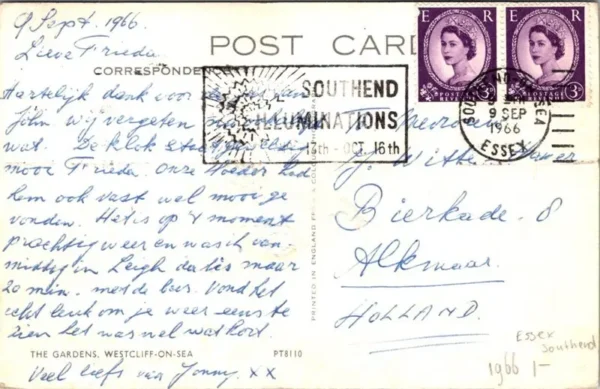 9 Sept. 1966.
Lieve Frieda.
POST CARD
CORRESPONDE
Hartelijk dank voor
John wij vergeten
wat. De klok staat
mooi Frieda onze Moeder had
hem ook vast wel mooi ge
vonden. Het is op 't moment
prachtig weer en was ik van-
middag in Leigh da's maar
20 min. met de bus. Vond het
echt leuk om je weer eens te
zien het was wel wat kort.
THE GARDENS, WESTCLIFF-ON-SEA PT8110
Veel liefs van Jonny. xx
SOUTHEND
ILLUMINATIONS
13th - OCT. 16th
E R
POSTAGE REVENUE
3D
E R
POSTAGE REVENUE
3D
SOUTHEND-ON-SEA
9 SEP
1966
ESSEX
PRINTED IN ENGLAND
J. Witte
Bierkade. 8
Alkmaar.
HOLLAND.
Essex
Southend
1966 1-